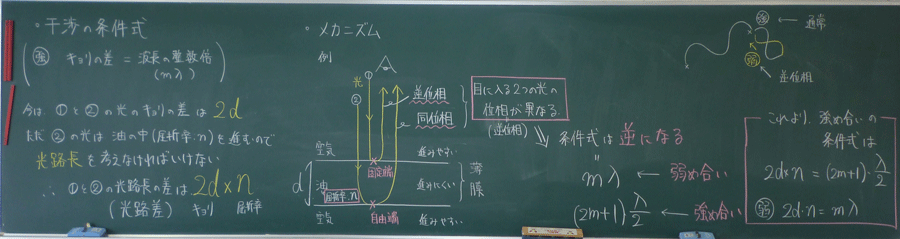 ・干渉の条件式
強 キョリの差 = 波長の整数倍
(mλ)
今は、①と②の光のキョリの差は 2d
ただ ②の光は 油の中(屈折率:n)を進むので
光路長を考えなければいけない
∴ ①と②の光路長の差は 2d×n
(光路差) キョリ 屈折率
・メカニズム
例
光
①
②
逆位相
同位相
空気 進みやすい
固定端
d 油 進みにくい 薄膜
屈折率:n
空気 自由端 進みやすい
目に入る2つの光の
位相が異なる。
(逆位相)
⇒ 条件式は 逆になる
mλ ← 弱め合い
(2m+1)λ/2 ← 強め合い
強 ← 通常
弱 逆位相
これより、強め合いの
条件式は
2d×n = (2m+1)・λ/2
弱 2d・n = mλ